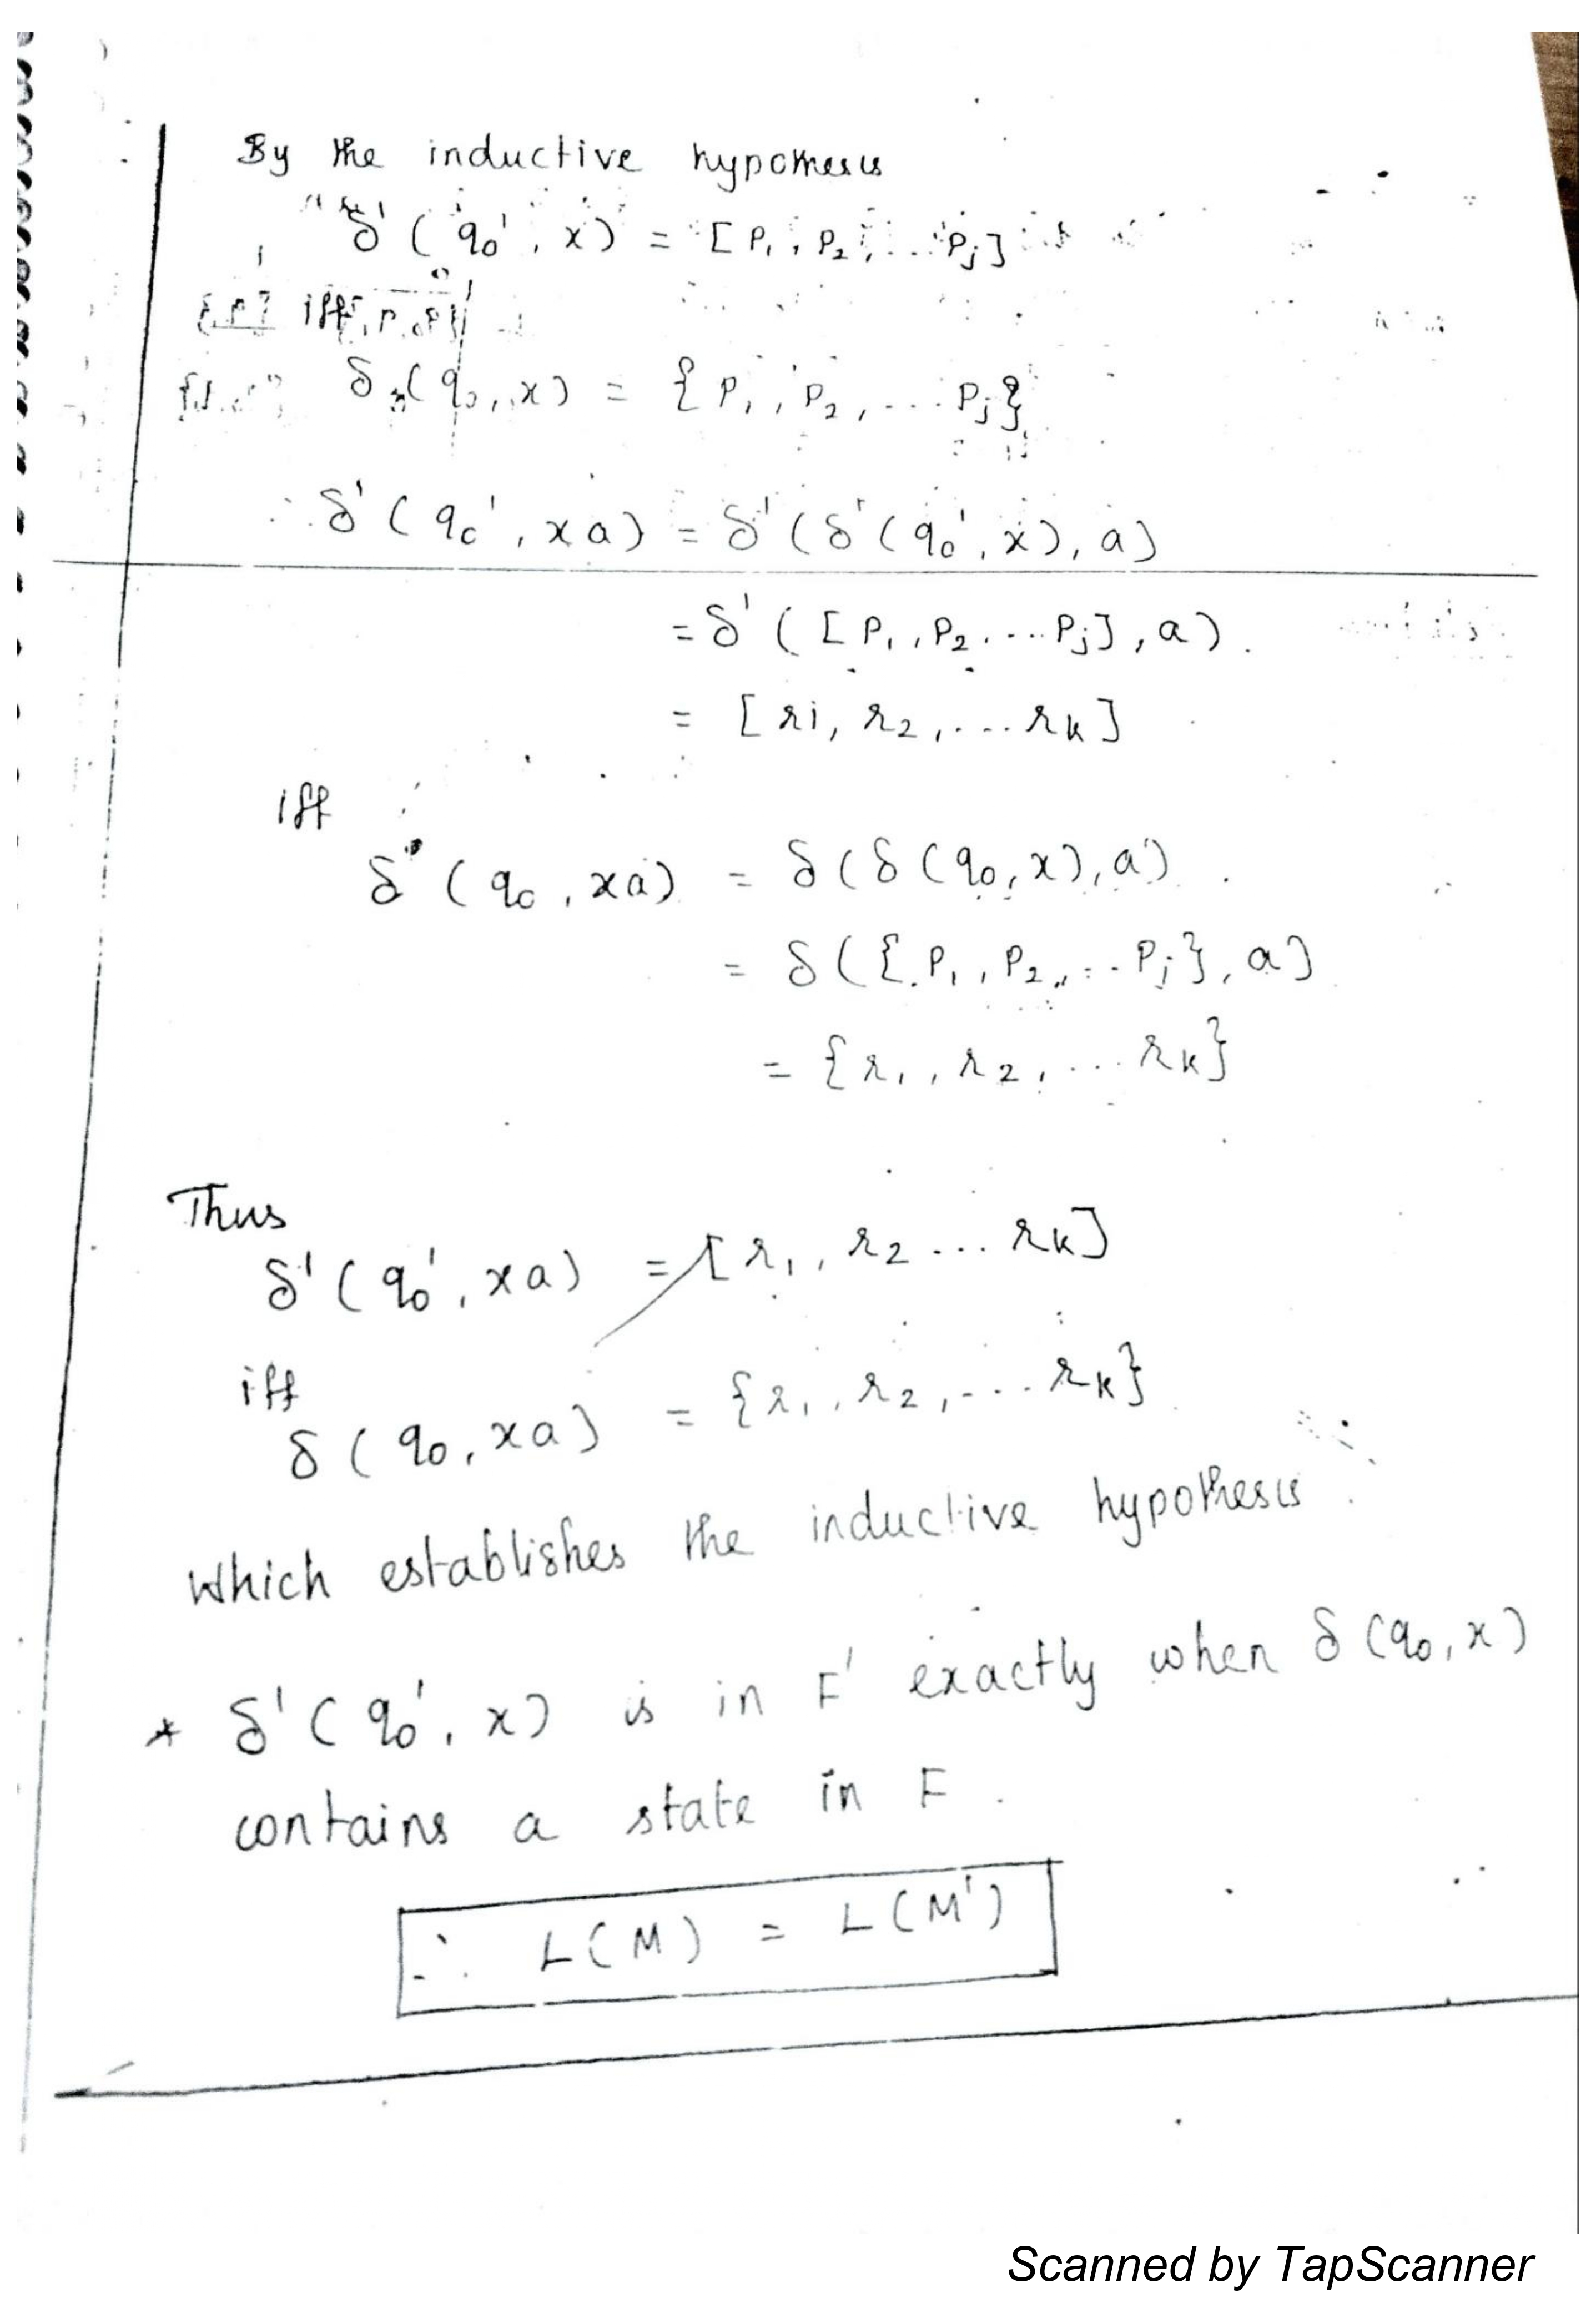 By the inductive hypothesis
δ' ( q0' , x ) = [ P1 , P2 , ... Pj ]
iff
δ ( q0 , x ) = { P1 , P2 , ... Pj }
∴ δ' ( q0' , x a ) = δ' ( δ' ( q0' , x ) , a )
= δ' ( [ P1 , P2 , ... Pj ] , a ) .
= [ ri , r2 , ... rk ]
iff
δ ( q0 , xa ) = δ ( δ ( q0 , x ) , a )
= δ ( { P1 , P2 , ... Pj } , a )
= { r1 , r2 , ... rk }
Thus
δ' ( q0' , x a ) = [ r1 , r2 ... rk ]
iff
δ ( q0 , x a ) = { r1 , r2 , ... rk }
which establishes the inductive hypothesis .
* δ' ( q0' , x ) is in F' exactly when δ ( q0 , x )
contains a state in F .
∴ L ( M ) = L ( M' )
Scanned by TapScanner